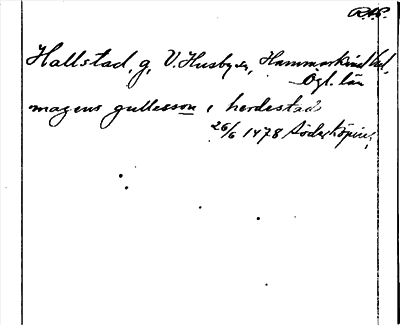 Hallstad, g, V. Husby sn, Hammarkind hd,
Ögl. län
magens gullesson i herdestads
26/6 1478 Söderköping,